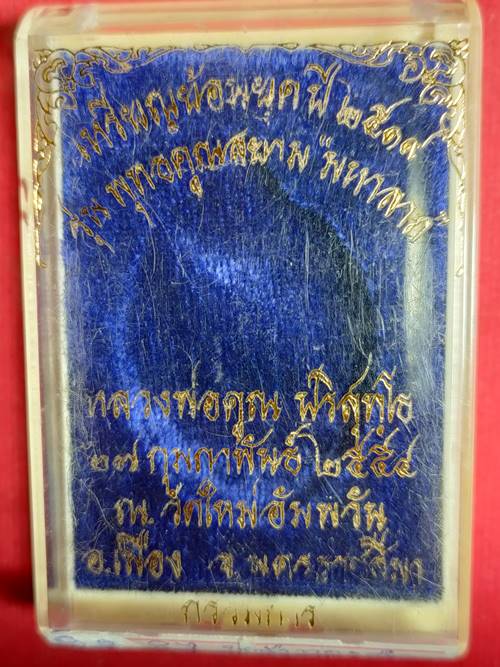 เหรียญย้อนยุค ปี ๒๕๑๙
รุ่น พุทธคูณสยาม "มหาลาภ"
หลวงพ่อคูณ ปริสุทฺโธ
๒๗ กุมภาพันธ์ ๒๕๕๔
ณ. วัดใหม่อัมพวัน
อ.เมือง จ.นครราชสีมา
กรรมการ